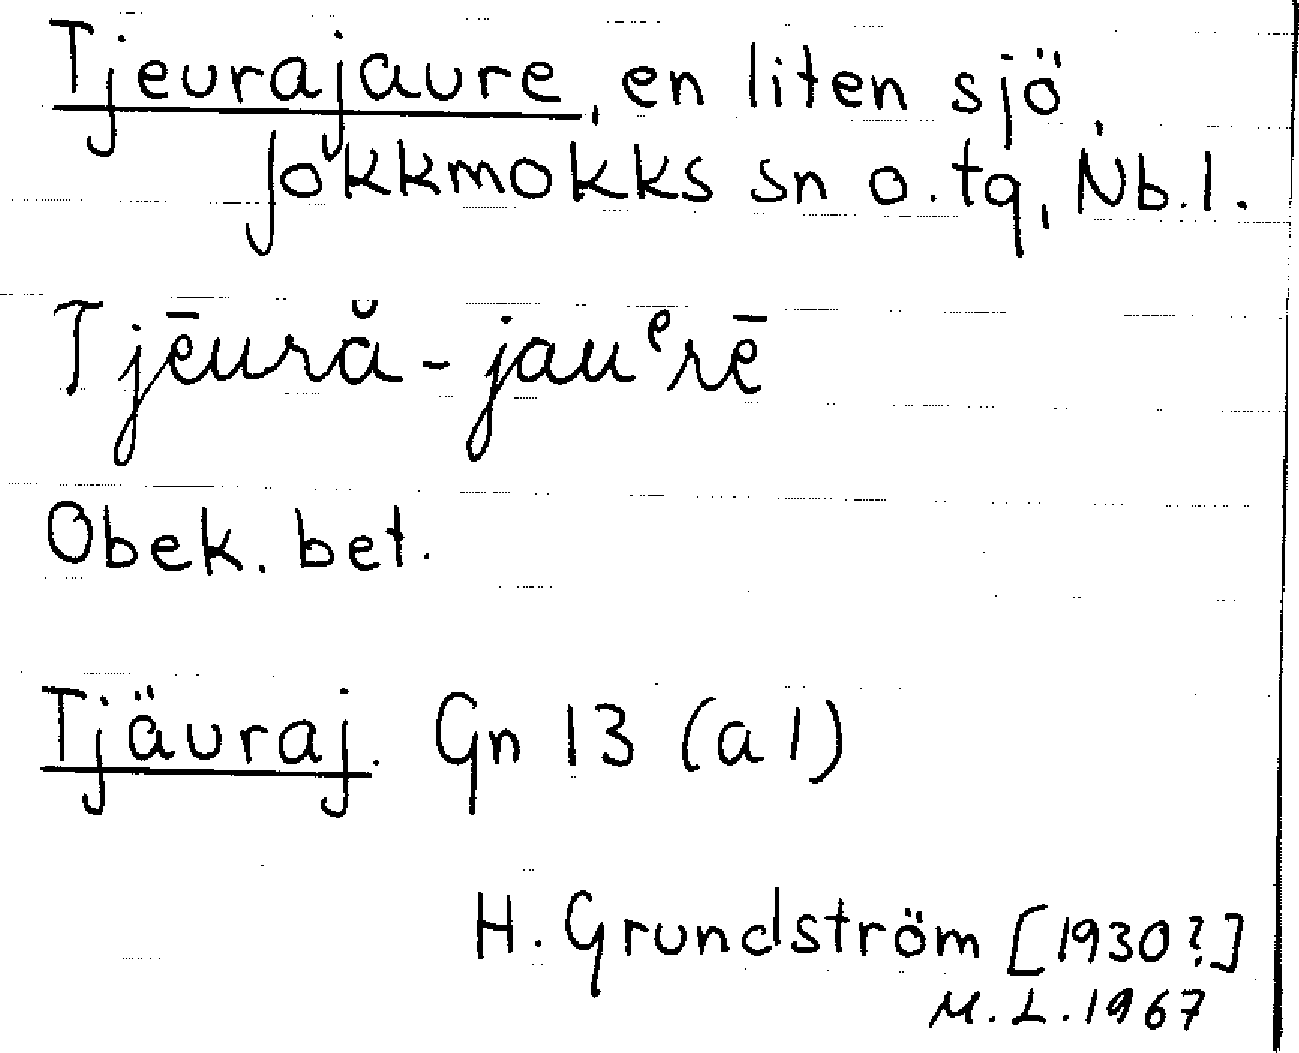 Tjeurajaure, en liten sjö,
Jokkmokks sn o. tg, Nb. l.
Tjēură-jauᵉrē
Obek. bet.
Tjäuraj. Gn 13 (a 1)
H. Grundström [1930?]
M. L. 1967